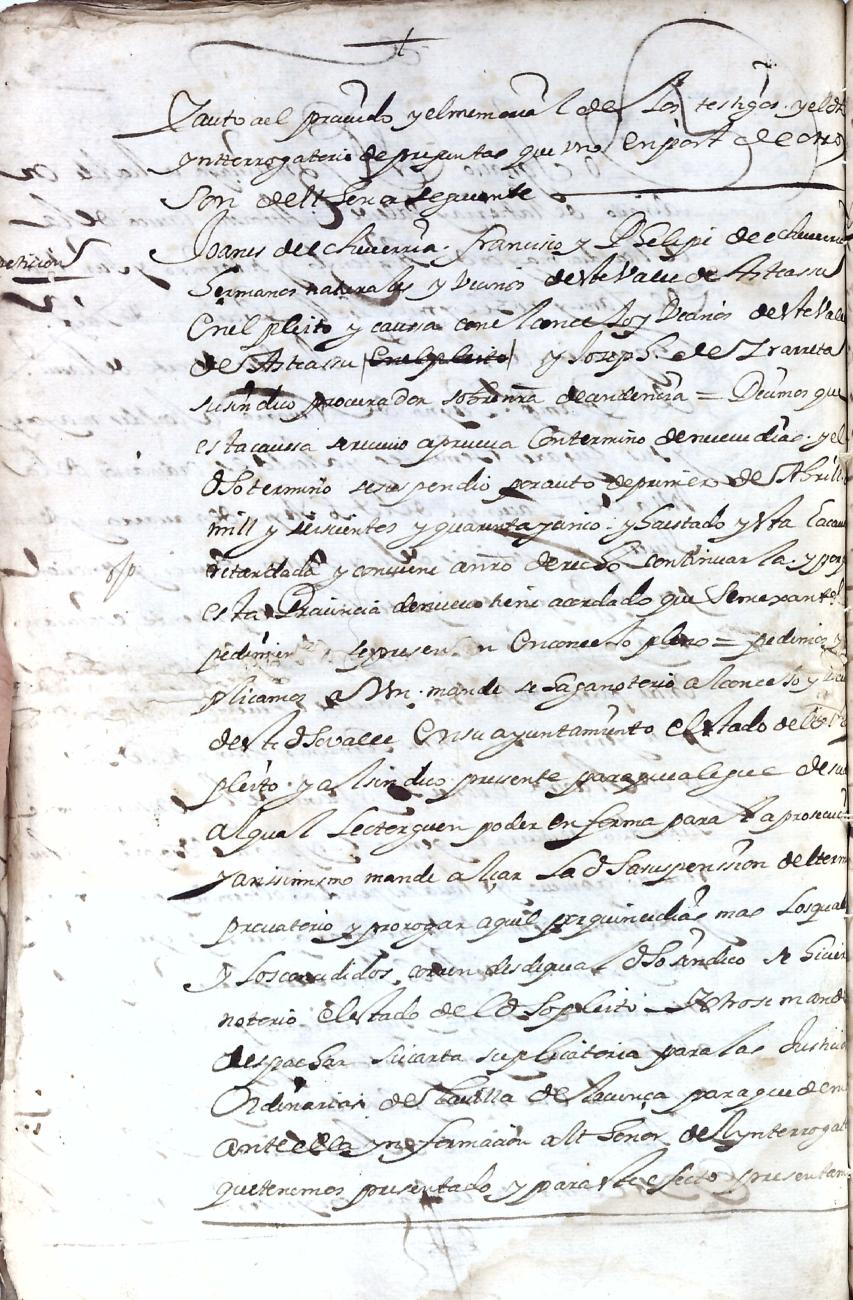 Y auto a el proveido y el memorial de los testigos y el dho
ynterrogatorio de preguntas que uno en post de otro
son del thenor seguiente
peticion
Joanes de echeverria francisco y Phelipe de echeverria
hermanos naturales y vecinos deste Valle de Asteassu
en el pleito y caussa con el concejo y vecinos deste Valle
de Asteassu en el pleito y Joseph de Yrarreta
su sindico procurador sobre nra decendencia = Decimos que
esta caussa se recivio a prueva con termino de nueve dias y el
dho termino se suspendio por auto de primero de Abrill
mill y seiscientos y quarenta y cinco y ha estado y esta la caussa
retardada y conviene a nro derecho continuarla y porq
esta Provincia de nuevo tiene acordado que semexantes
pedimientos se presenten en concejo pleno = pedimos y
plicamos a Vm mande se haga noterio al concejo y
deste dho valle en su ayuntamiento el estado del dho
pleito y al sindico presente para que alegue de su
al qual se otorguen poder en forma para la prosecucion
y anssimismo mande alçar la dha suspenssion del termi
provatorio y prorogar aquel por quince dias mas los quales
y los concedidos corren desde que al dho sindico se hiciere
noterio el estado del dho pleito = Y otrosi mande
despachar su carta suplicatoria para las Justicias
Ordinarias de la villa de para que de en
ante ella ynformacion al thenor del ynterrogat
que tenemos presentado y para este efecto presentam